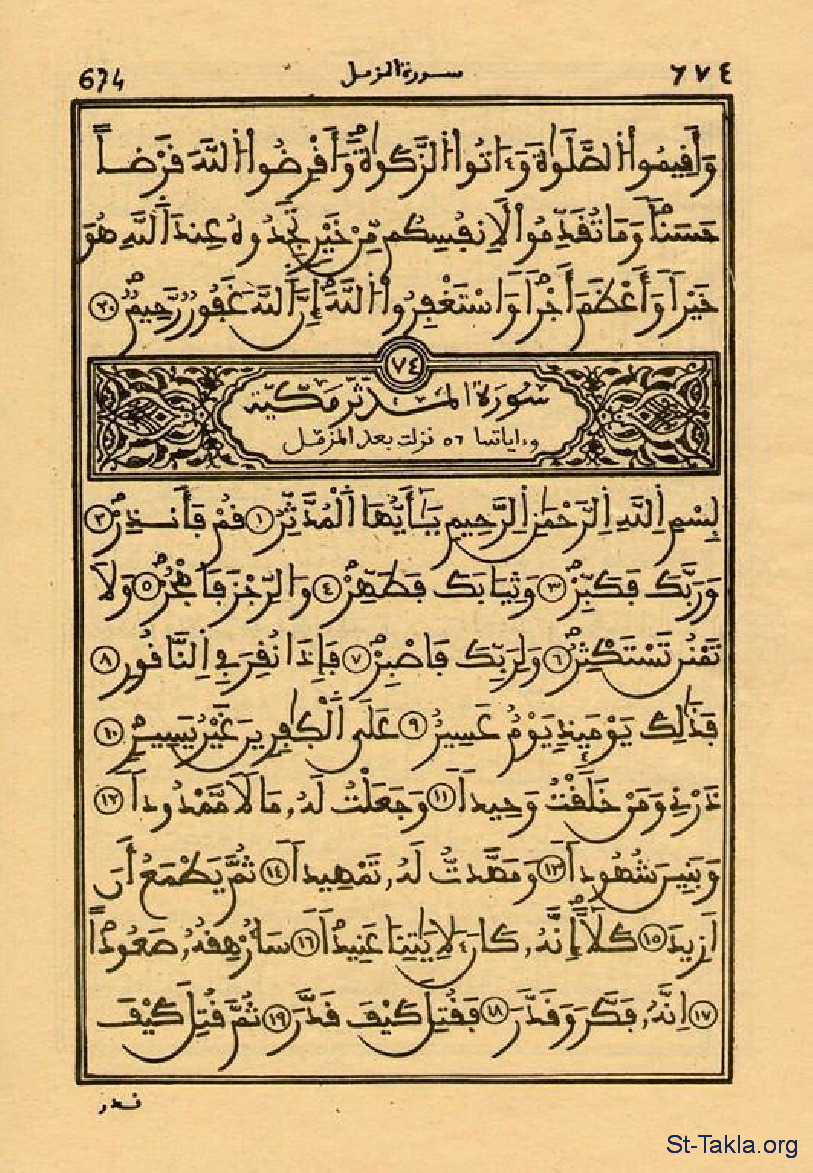 674 سورة المزمل ٦٧٤
وَأَفِيمُواْ الصَّلَوٰةَ وَءَاتُواْ الزَّكَوٰةَ وَأَفْرِضُواْ اللَّهَ فَرْضاً
حَسَناً وَمَا تُفَدِّمُواْ لِأَنفُسِكُم مِّنْ خَيْرٍ تَجِدُوهُ عِندَ اَللَّهِ هُوَ
خَيْراً وَأَعْظَمَ أَجْراً وَاسْتَغْفِرُواْ اللَّهَ إِنَّ اَللَّهَ غَفُورٌ رَّحِيمٌ ٢٠
٧٤
سورة المدثر مكية
وءاياتها ٥٦ نزلت بعد المزمل
بِسْمِ اِللَّهِ اِلرَّحْمَٰنِ اِلرَّحِيمِ يَٰأَيُّهَا اَلْمُدَّثِّرُ ١ فُمْ فَأَنذِرْ ٢
وَرَبَّكَ فَكَبِّرْ ٣ وَثِيَابَكَ فَطَهِّرْ ٤ وَالرِّجْزَ فَاهْجُرْ ٥ وَلاَ
تَمْنُن تَسْتَكْثِرُ ٦ وَلِرَبِّكَ فَاصْبِرْ ٧ فَإِذَا نُفِرَ فِي اِلنَّافُورِ ٨
فَذَٰلِكَ يَوْمَئِذٍ يَوْمٌ عَسِيرٌ ٩ عَلَى اَلْكَٰفِرِينَ غَيْرُ يَسِيرٍ ١٠
ذَرْنِي وَمَنْ خَلَفْتُ وَحِيداً ١١ وَجَعَلْتُ لَهُۥ مَالاً مَّمْدُوداً ١٢
وَبَنِينَ شُهُوداً ١٣ وَمَهَّدتُّ لَهُۥ تَمْهِيداً ١٤ ثُمَّ يَطْمَعُ أَنَ
اَزِيدَ ١٥ كَلاَّ إِنَّهُۥ كَانَ لِأَيَٰتِنَا عَنِيداً ١٦ سَأُرْهِفُهُۥ صَعُوداً
١٧ اِنَّهُۥ فَكَّرَ وَفَدَّرَ ١٨ فَفُتِلَ كَيْفَ فَدَّرَ ١٩ ثُمَّ فُتِلَ كَيْفَ
فدر
St-Takla.org